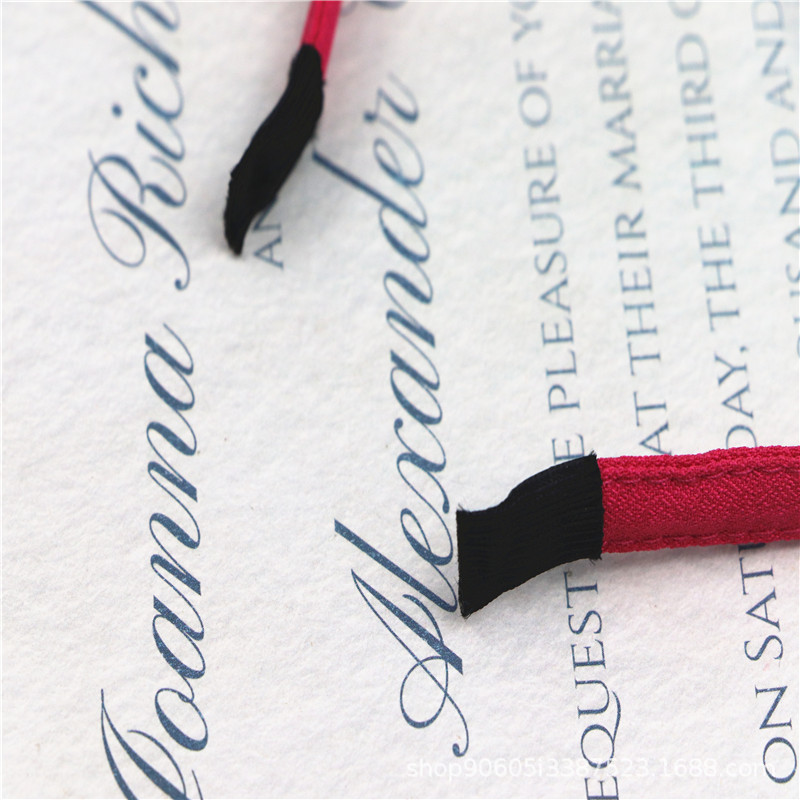 Joanna Rich
AN
Alexander
EQUEST E PLEASURE OF YO
AT THEIR MARRIA
ON SATU DAY, THE THIRD O
USAND AND
shop9060513387823.1688.com